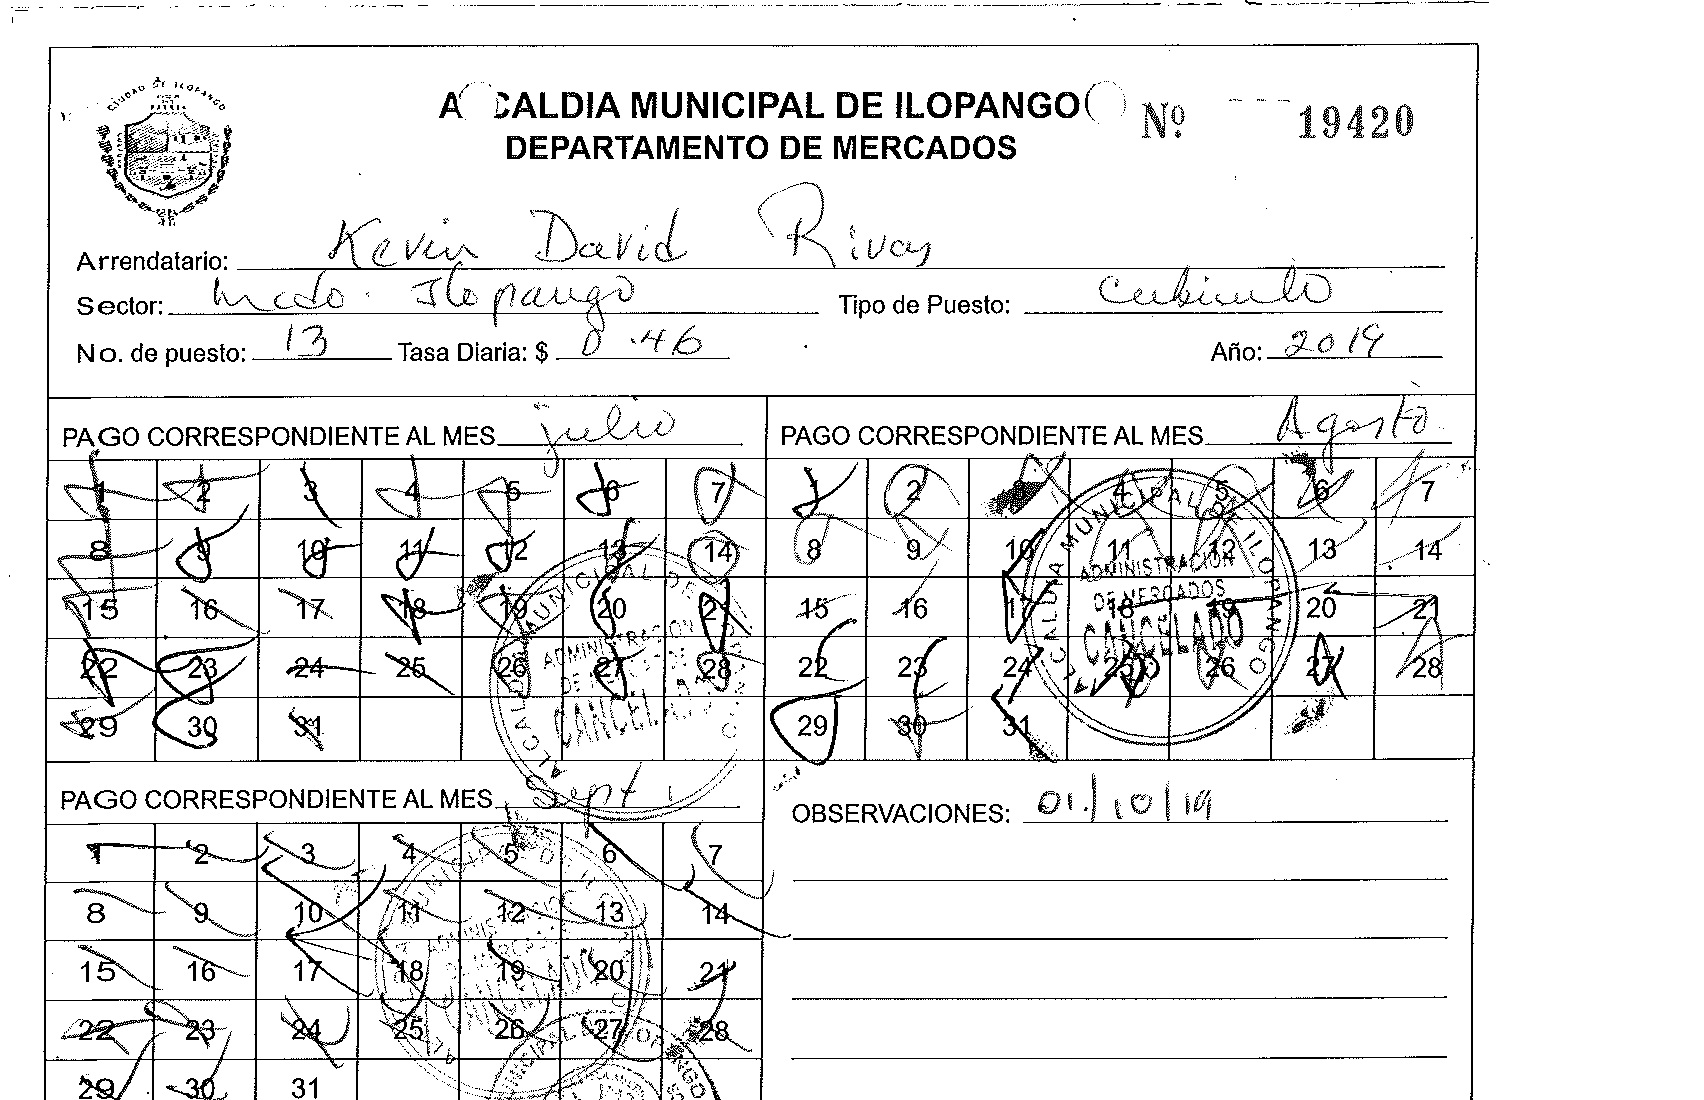 CIUDAD DE ILOPANGO
ALCALDIA MUNICIPAL DE ILOPANGO
Nº 19420
DEPARTAMENTO DE MERCADOS
Arrendatario: Kevin David Rivas
Sector: Mcdo. Ilopango Tipo de Puesto: Cubiculo
No. de puesto: 13 Tasa Diaria: $ 0.46 Año: 2019
PAGO CORRESPONDIENTE AL MES julio
1 2 3 4 5 6 7
8 9 10 11 12 13 14
15 16 17 18 19 20 21
22 23 24 25 26 27 28
29 30 31
ALCALDIA MUNICIPAL DE ILOPANGO
ADMINISTRACION
DE MERCADOS
CANCELADO
PAGO CORRESPONDIENTE AL MES Agosto
1 2 3 4 5 6 7
8 9 10 11 12 13 14
15 16 17 18 19 20 21
22 23 24 25 26 27 28
29 30 31
ALCALDIA MUNICIPAL DE ILOPANGO
ADMINISTRACION
DE MERCADOS
CANCELADO
PAGO CORRESPONDIENTE AL MES Sept
1 2 3 4 5 6 7
8 9 10 11 12 13 14
15 16 17 18 19 20 21
22 23 24 25 26 27 28
29 30 31
ADMINISTRACION
DE MERCADOS
CANCELADO
OBSERVACIONES: 01/10/19